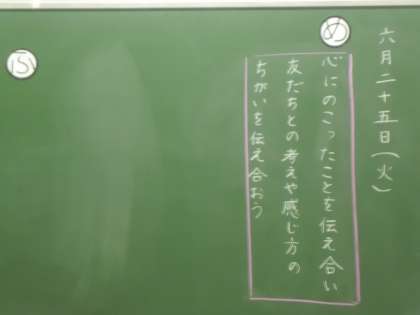 六月二十五日(火)
め
心にのこったことを伝え合い
友だちとの考えや感じ方の
ちがいを伝え合おう
ふ